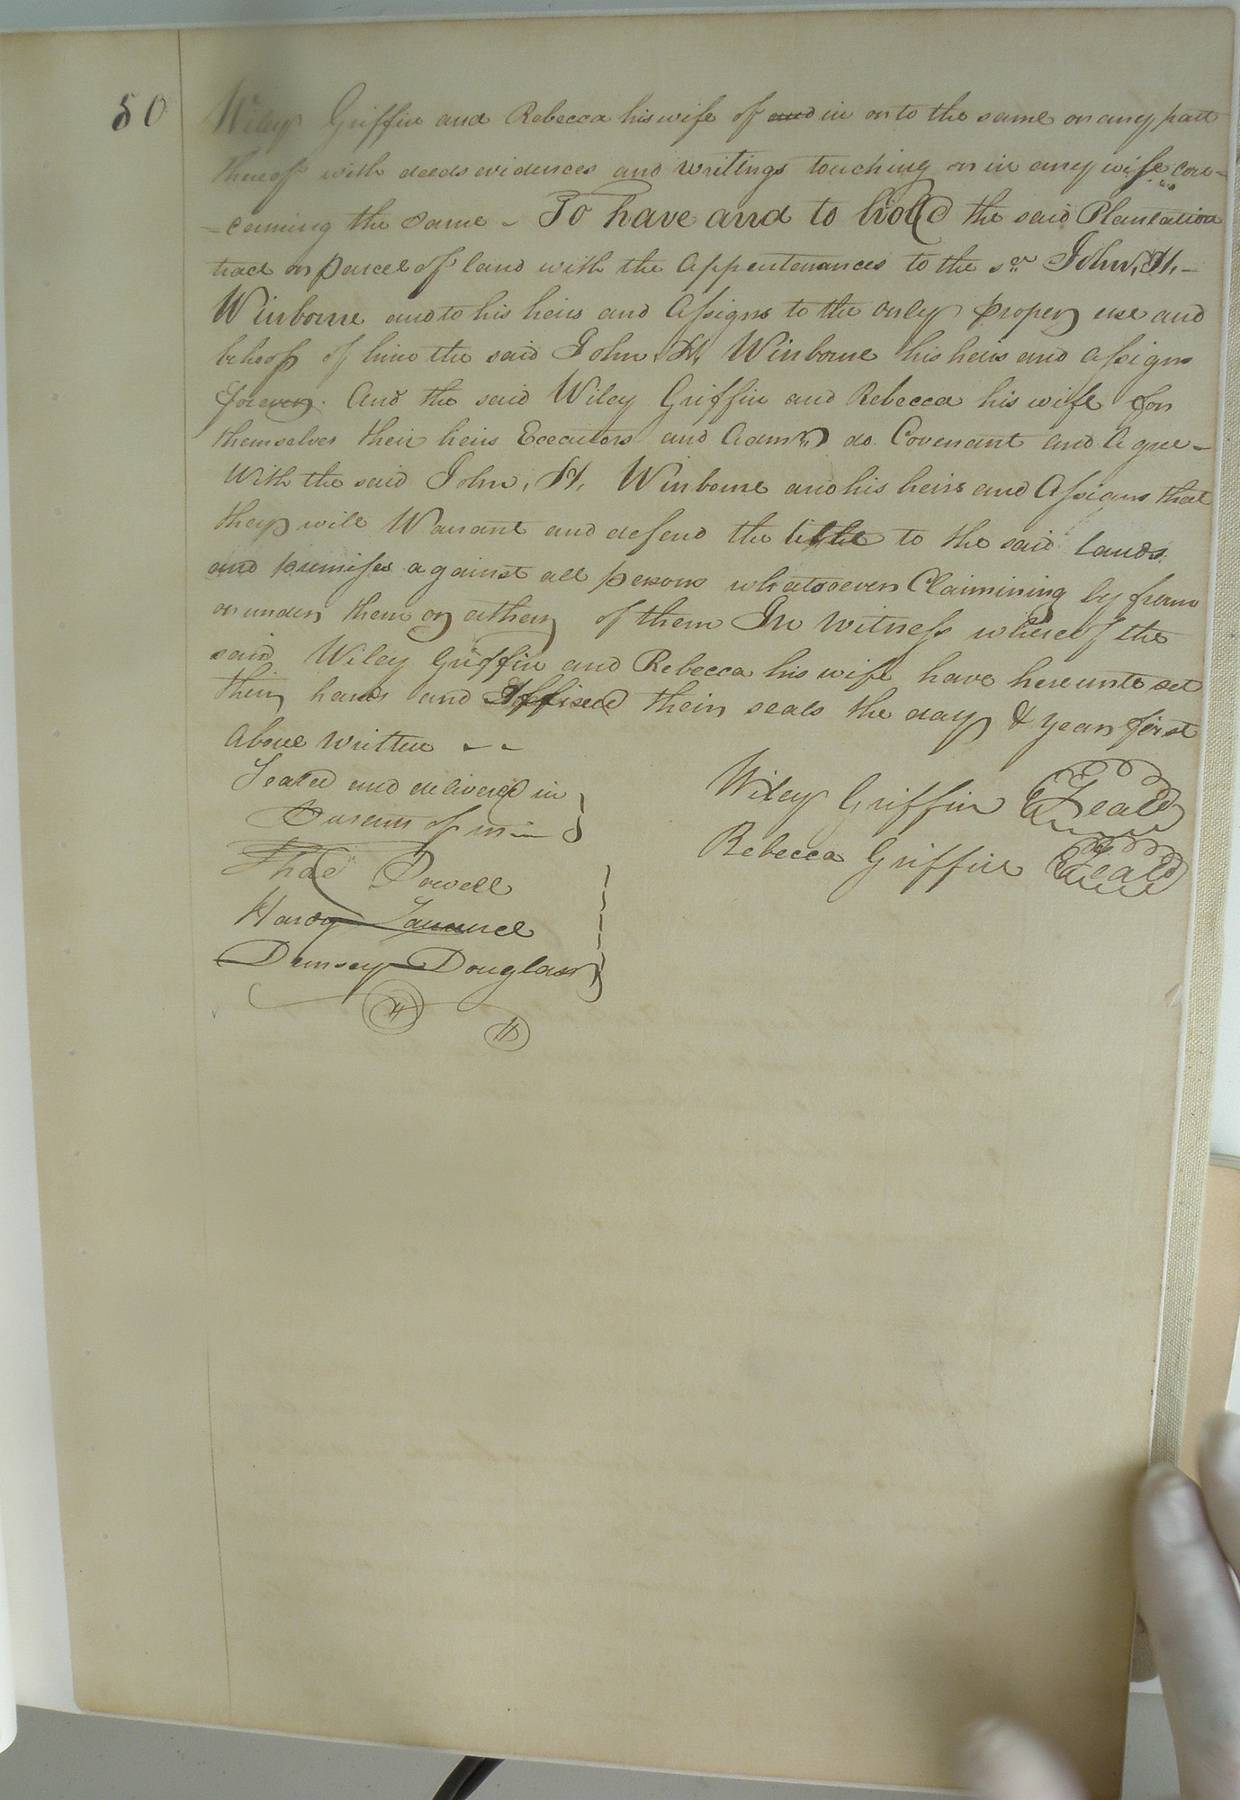 80
Wiley Griffin and Rebecca his wife of and in or to the same or any part
thereof with deeds evidences and writings touching or in any wise con-
-cerning the same - To have and to hold the said Plantation
tract or parcel of land with the Appentenances to the sd. John, H,-
Winborne and to his heirs and Assigns to the only proper use and
behoof of him the said John, H, Winborne his heirs and assigns
forever. And the said Wiley Griffin and Rebecca his wife for
themselves their heirs Executors and Admrs do Covenant and Agree-
With the said John, H, Winborne and his heirs and Assigns that
they will Warrant and defend the title to the said lands
and premises against all persons whatsoever Claimining by from
or under them or either of them In Witness whereof the
said Wiley Griffin and Rebecca his wife have hereunto set
their hands and Affixed their seals the day & year first
Above Written
Sealed and delivered in
Presents of us
Wiley Griffin Seal
Rebecca Griffin Seal
Powell
Hardy
Demsey Douglass